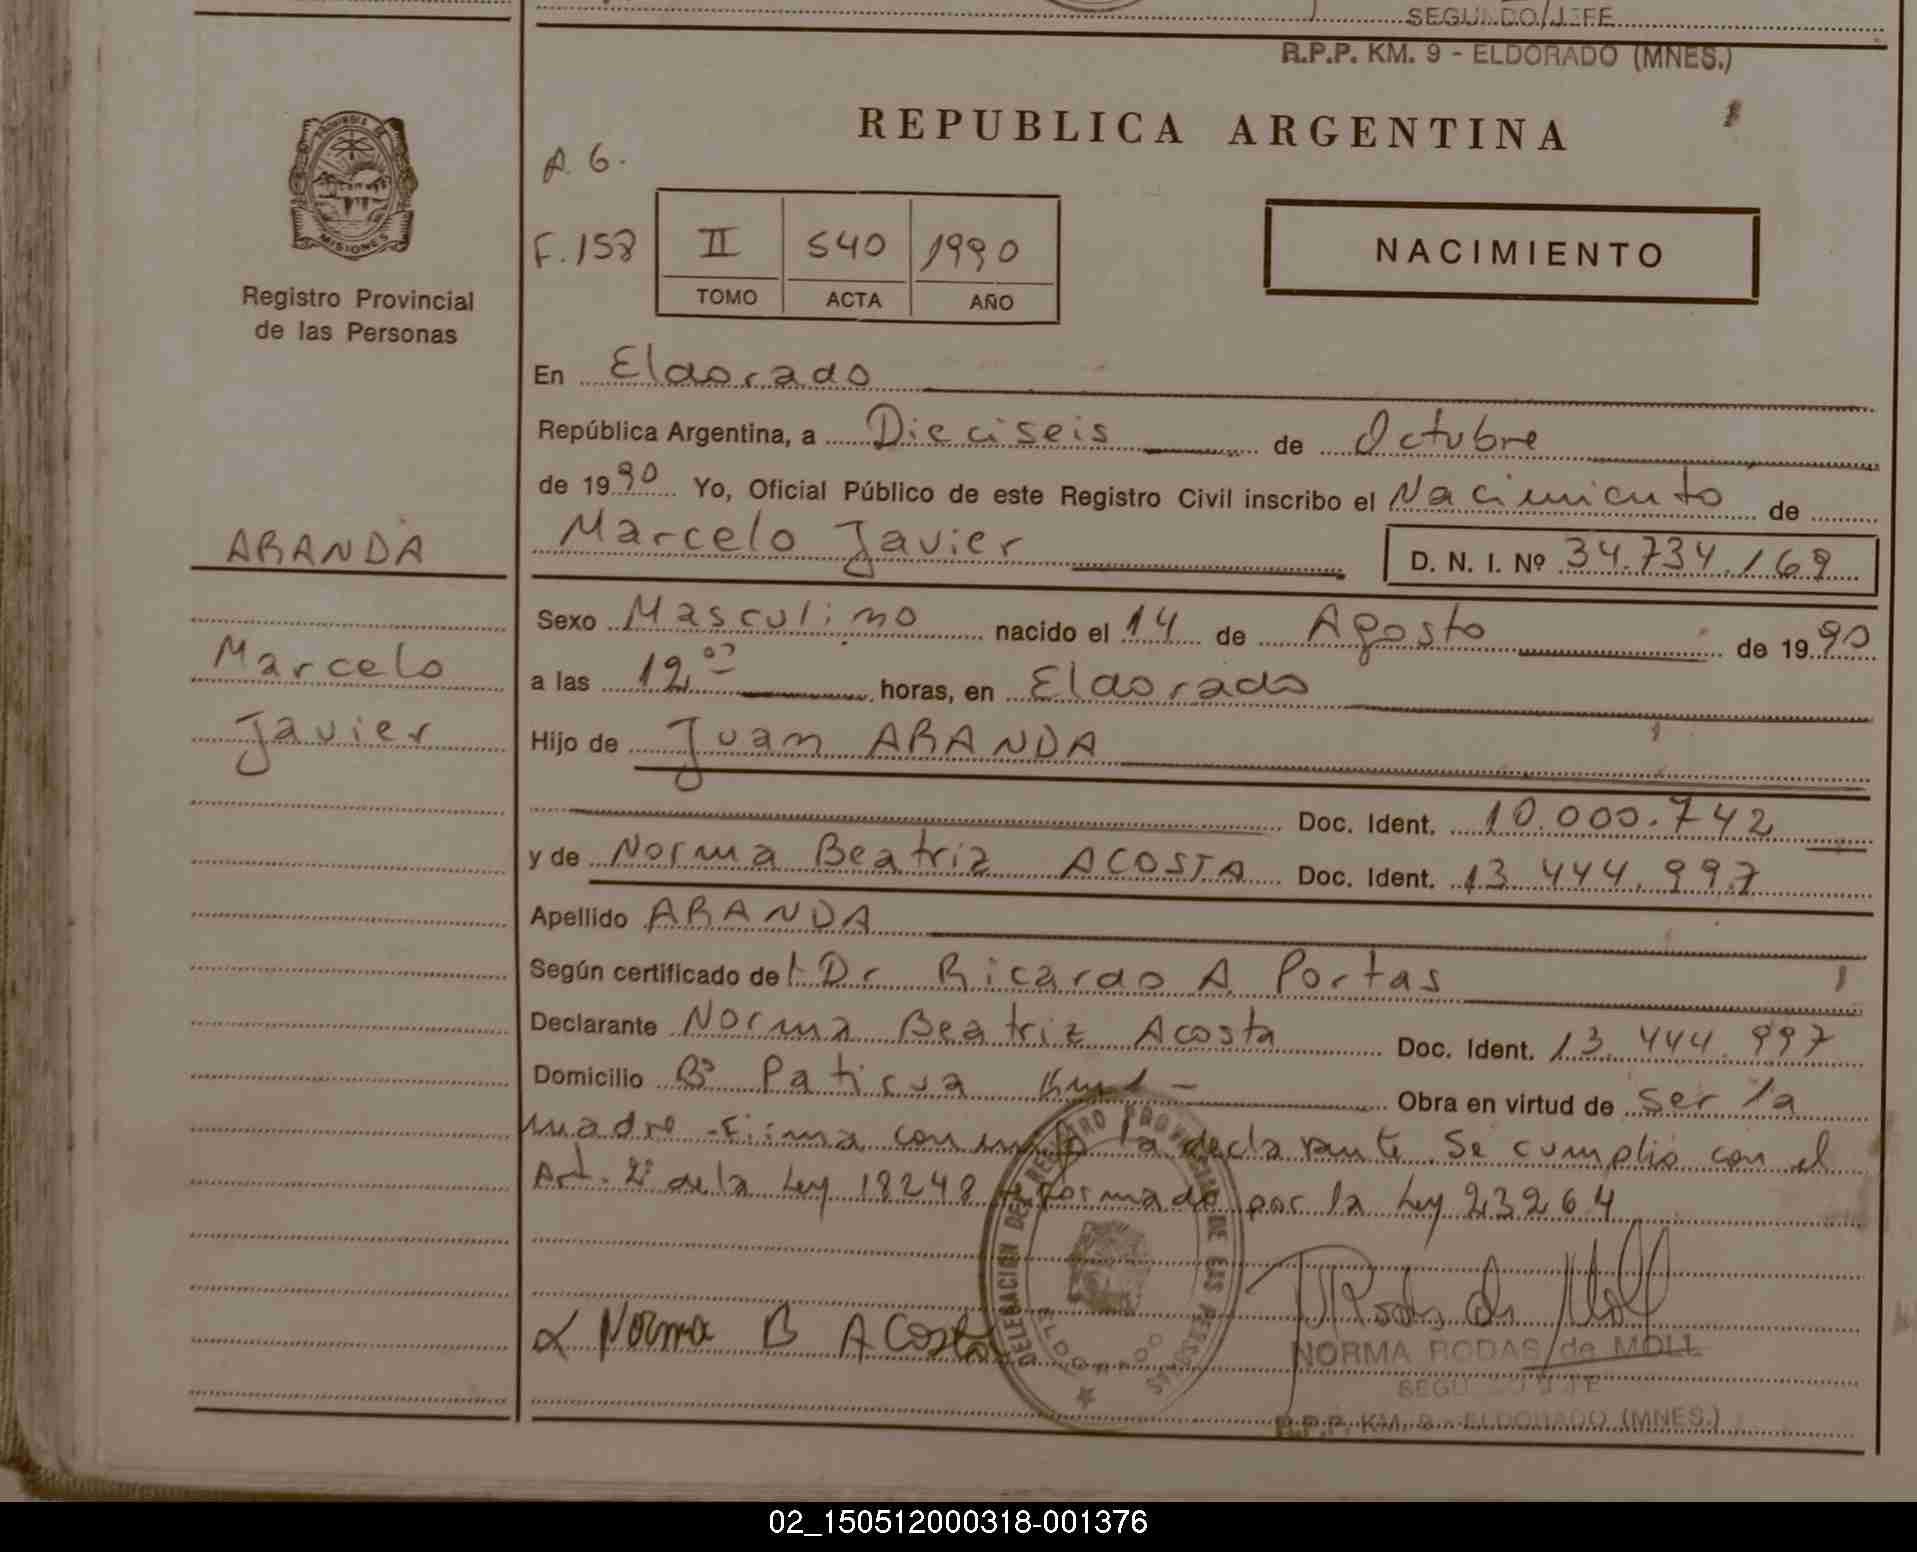 SEGUNDO JEFE
R.P.P. KM. 9 - ELDORADO (MNES.)
PROVINCIA DE
MISIONES
Registro Provincial
de las Personas
REPUBLICA ARGENTINA
A. G.
F. 158
II 540 1990
TOMO ACTA AÑO
NACIMIENTO
En Eldorado
República Argentina, a Dieciseis de Octubre
de 1990 Yo, Oficial Público de este Registro Civil inscribo el Nacimiento de
Marcelo Javier D. N. I. Nº 34.734.169
ARANDA
Marcelo
Javier
Sexo Masculino nacido el 14 de Agosto de 1990
a las 12 horas, en Eldorado
Hijo de Juan ARANDA
Doc. Ident. 10.000.742
y de Norma Beatriz ACOSTA Doc. Ident. 13.444.997
Apellido ARANDA
Según certificado del Dr Ricardo A. Portas
Declarante Norma Beatriz Acosta Doc. Ident. 13.444.997
Domicilio Bº Paticua Km 1 - Obra en virtud de ser la
madre - Firma conmigo la declarante. Se cumplió con el
Art. 2º de la Ley 18248 reformado por la Ley 23264
Norma B Acosta
DELEGACION DEL REGISTRO PROVINCIAL DE LAS PERSONAS
ELDORADO
NORMA RODAS de MOLL
SEGUNDO JEFE
R.P.P. KM. 9 - ELDORADO (MNES.)
02_150512000318-001376